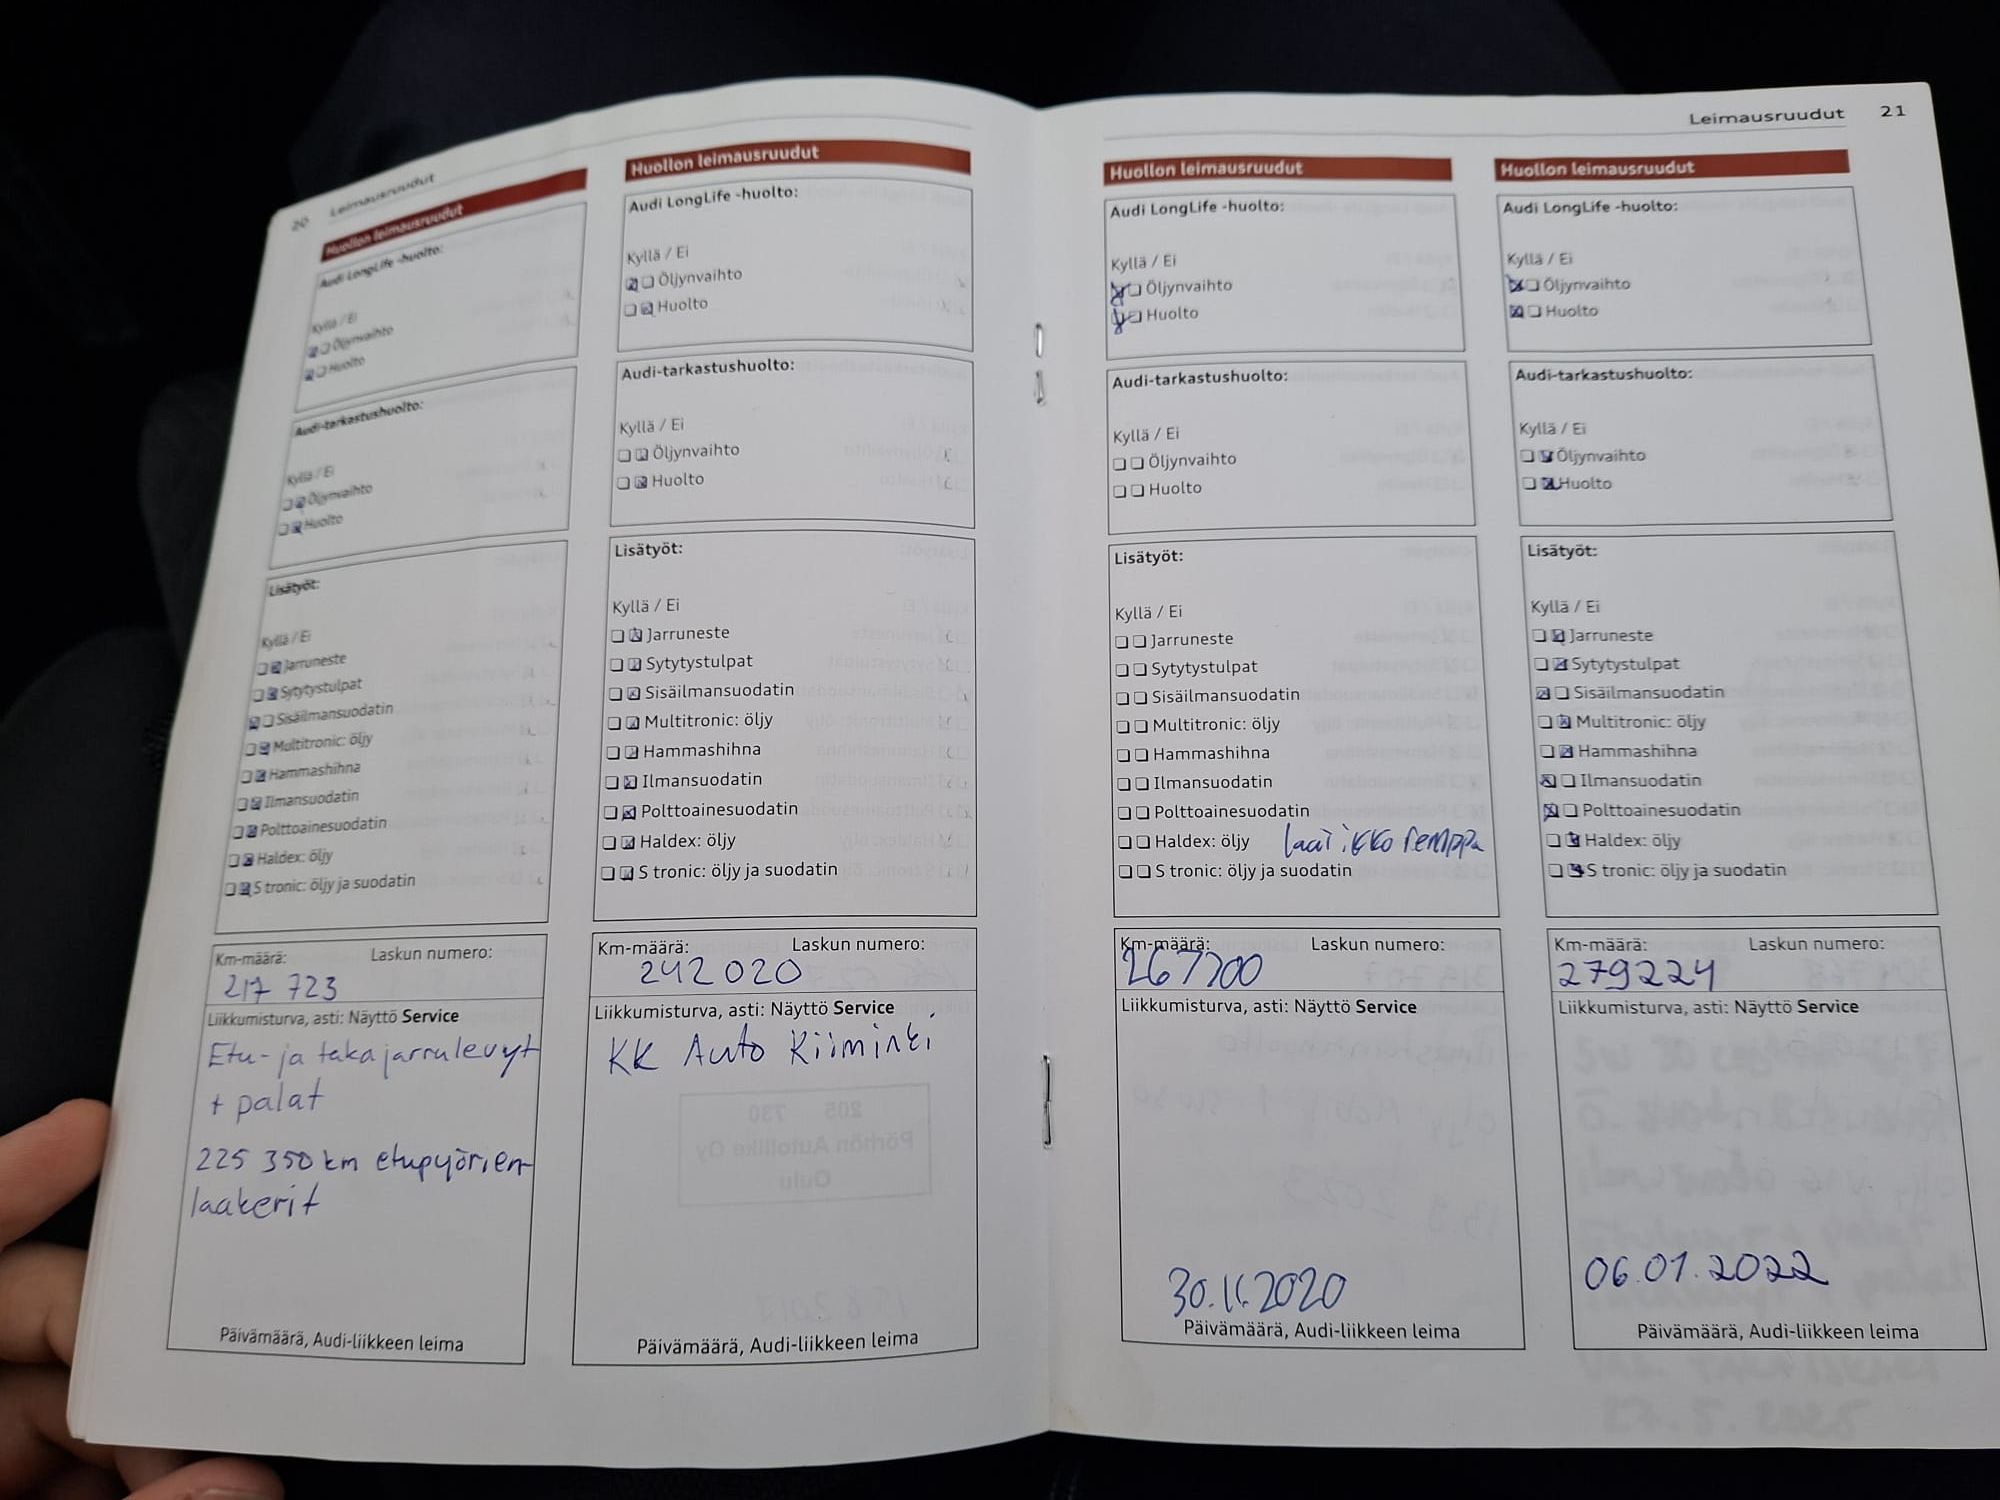 20 Leimausruudut
Huollon leimausruudut
Audi LongLife -huolto:
Kyllä / Ei
Öljynvaihto
Huolto
Audi-tarkastushuolto:
Kyllä / Ei
Öljynvaihto
Huolto
Lisätyöt:
Kyllä / Ei
Jarruneste
Sytytystulpat
Sisäilmansuodatin
Multitronic: öljy
Hammashihna
Ilmansuodatin
Polttoainesuodatin
Haldex: öljy
S tronic: öljy ja suodatin
Km-määrä: Laskun numero:
217 723
Liikkumisturva, asti: Näyttö Service
Etu- ja takajarrulevyt
+ palat
225 350 km etupyörien
laakerit
Päivämäärä, Audi-liikkeen leima
Huollon leimausruudut
Audi LongLife -huolto:
Kyllä / Ei
Öljynvaihto
Huolto
Audi-tarkastushuolto:
Kyllä / Ei
Öljynvaihto
Huolto
Lisätyöt:
Kyllä / Ei
Jarruneste
Sytytystulpat
Sisäilmansuodatin
Multitronic: öljy
Hammashihna
Ilmansuodatin
Polttoainesuodatin
Haldex: öljy
S tronic: öljy ja suodatin
Km-määrä: Laskun numero:
242020
Liikkumisturva, asti: Näyttö Service
KK Auto Kiiminki
Päivämäärä, Audi-liikkeen leima
Leimausruudut 21
Huollon leimausruudut
Audi LongLife -huolto:
Kyllä / Ei
Öljynvaihto
Huolto
Audi-tarkastushuolto:
Kyllä / Ei
Öljynvaihto
Huolto
Lisätyöt:
Kyllä / Ei
Jarruneste
Sytytystulpat
Sisäilmansuodatin
Multitronic: öljy
Hammashihna
Ilmansuodatin
Polttoainesuodatin
Haldex: öljy laatikko remppa
S tronic: öljy ja suodatin
Km-määrä: Laskun numero:
Liikkumisturva, asti: Näyttö Service
30.11.2020
Päivämäärä, Audi-liikkeen leima
Huollon leimausruudut
Audi LongLife -huolto:
Kyllä / Ei
Öljynvaihto
Huolto
Audi-tarkastushuolto:
Kyllä / Ei
Öljynvaihto
Huolto
Lisätyöt:
Kyllä / Ei
Jarruneste
Sytytystulpat
Sisäilmansuodatin
Multitronic: öljy
Hammashihna
Ilmansuodatin
Polttoainesuodatin
Haldex: öljy
S tronic: öljy ja suodatin
Km-määrä: Laskun numero:
279224
Liikkumisturva, asti: Näyttö Service
06.01.2022
Päivämäärä, Audi-liikkeen leima